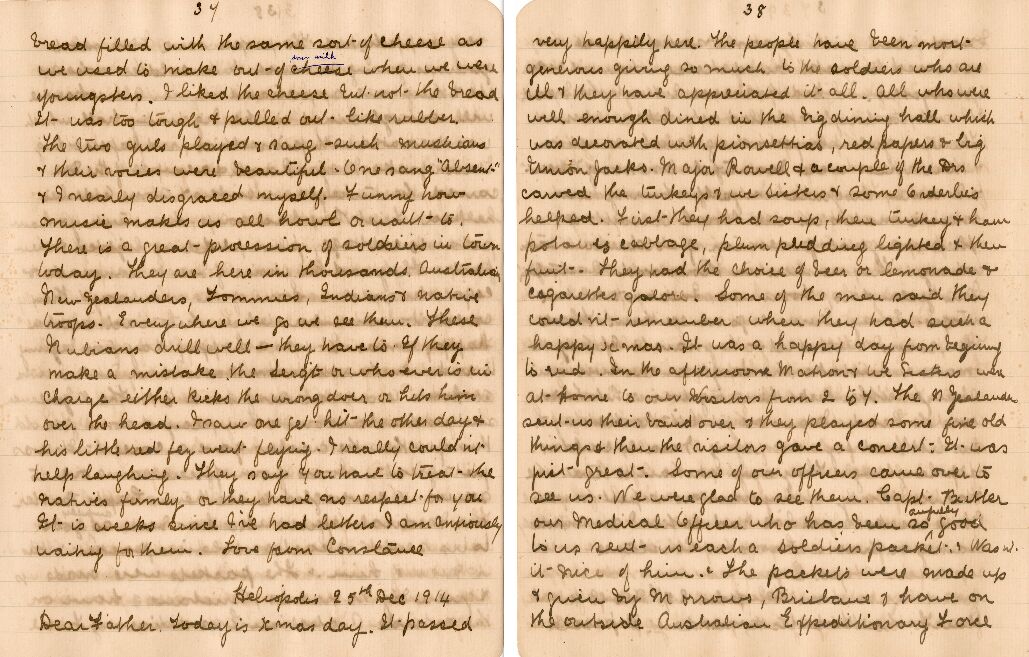 37
bread filled with the same sort of cheese as
we used to make out of cheese when we were
youngsters. I liked the cheese but not the bread
It was too tough & pulled out like rubber.
The two girls played & sang - such musicians
& their voices were beautiful. One sang "Absent"
& I nearly disgraced myself. Funny how
music makes us all howl or want to.
There is a great procession of soldiers in town
today. They are here in thousands. Australian,
New Zealanders, Tommies, Indians & native
troops. Everywhere we go we see them. These
Nubians drill well — they have to. If they
make a mistake the Sergt or who ever is in
charge either kicks the wrong doer or hits him
over the head. I saw one get hit the other day &
his little red fez went flying. I really couldn't
help laughing. They say you have to treat the
natives firmly or they have no respect for you
It is weeks since I've had letters I am anxiously
waiting for them. Love from Constance
Heliopolis 25th Dec 1914
Dear Father. Today is Xmas day. It passed
38
very happily here. The people have been most
generous giving so much to the soldiers who are
ill & they have appreciated it all. All who were
well enough dined in the big dining hall which
was decorated with pionsettias, red papers & big
Union Jacks. Major Rowell & a couple of the Drs
carved the turkeys & we Sisters & some Orderlies
helped. First they had soup, then turkey & ham
potatoes cabbage, plum pudding lighted & then
fruit. They had the choice of beer or lemonade &
cigarettes galore. Some of the men said they
couldn't remember when they had such a
happy Xmas. It was a happy day from begining
to end. In the afternoon Matron & we Sisters were
at home to our Visitors from 2 to 4. The N Zealanders
sent us their band over & they played some fine old
things & then the visitors gave a concert. It was
just great. Some of our officers came over to
see us. We were glad to see them. Capt. Butler
our Medical Officer who has been so good
to us sent us each a soldiers packet. Wasn't
it nice of him. The packets were made up
& given by Morrows, Brisbane & have on
the outside Australian Expeditionary Force